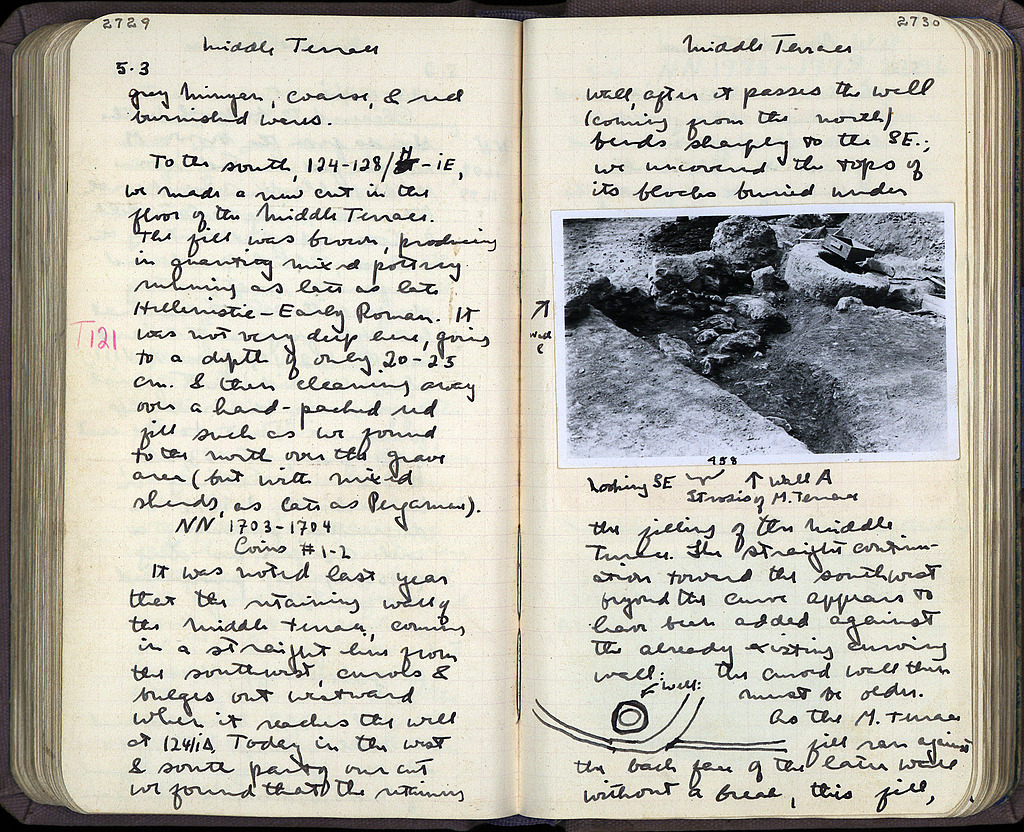 2729
Middle Terrace
5.3
gray minyan, coarse, & red
burnished wares.
To the south, 124-128/H-iE,
we made a new cut in the
floor of the Middle Terrace.
The fill was brown, producing
in quantity mixed pottery
running as late as late
Hellenistic-Early Roman. It
T121
was not very deep here, going
to a depth of only 20-25
cm. & then cleaning away
over a hard-packed red
fill such as we found
to the north over the grave
area (but with mixed
sherds, as late as Pergamene).
NN 1703-1704
Coins #1-2
It was noted last year
that the retaining wall of
the Middle Terrace, coming
in a straight line from
the southwest, curves &
bulges out westward
when it reaches the well
at 124/iA. Today in the west
& south part of our cut
we found that the retaining
2730
Middle Terrace
wall, after it passes the well
(coming from the north)
bends sharply to the SE.;
we uncovered the tops of
its blocks buried under
Wall
958
Looking SE ↑ Wall A
of M. Terrace
the filling of the Middle
Terrace. The straight continu-
ation toward the southwest
beyond the curve appears to
have been added against
the already existing curving
wall: the curved wall thus
Well:
must be older.
As the M. Terrace
fill ran against
the back face of the later wall
without a break, this fill,